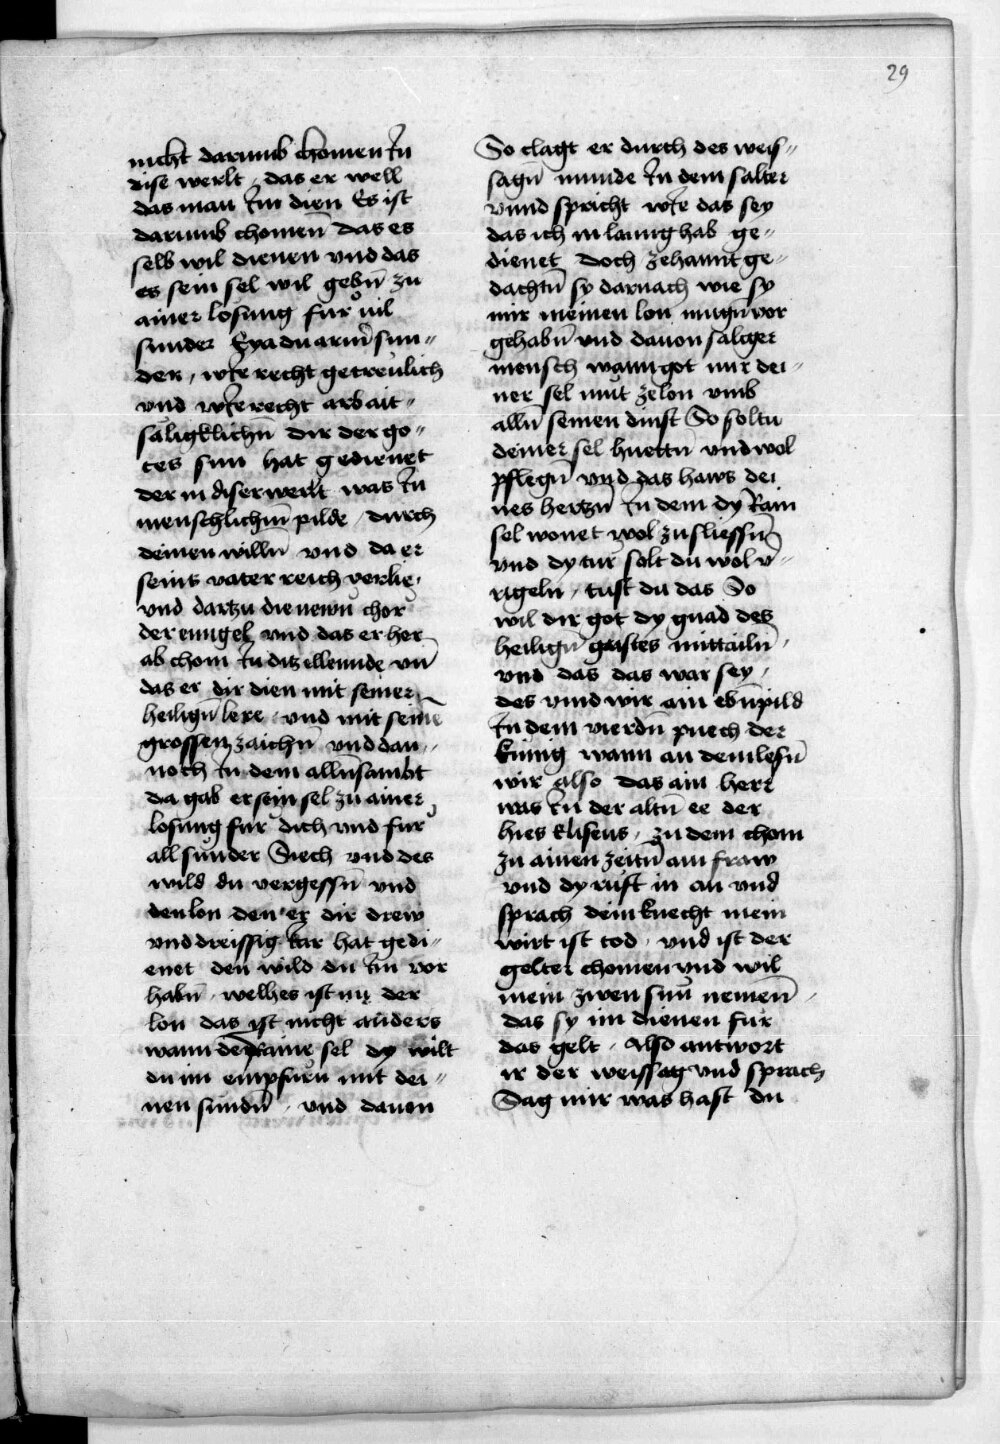 29
nicht darumb chomen In
dise werlt / das er well
das man Im dien Es ist
darumb chomen̄ das es
selb wil dienen vnd das
es sein sel wil gebn̄ zu
ainer losung fur uil
sunder Eya du arm̄ sun=
der / wie recht getreulich
vnd wie recht arbait=
saligklichn̄ dir der go=
tes sun hat gedienet
der in diser werlt was In
menschlichm̄ pilde / durch
deinen willn̄ vnd da er
seins vater reich verlie /
vnd dartzu die newn chor
der enngel vnd das er her
ab chom In ditz ellennde vn̄
das er dir dien mit seiner
heilign̄ lere / vnd mit seinē
grossen zaichn̄ vnd dan=
noch In dem alln̄ sambt
da gab er sein sel zu ainer
losung fur dich vnd fur
all sunder Siech vnd des
wild du vergessn̄ vnd
den lon den er dir drew
vnd dreissig Iar hat gedi=
enet den wild du Im vor
habn̄ / welhes ist nu der
lon das ist nicht anders
wann dein Raine sel dy wilt
du im empfurn mit dei=
nen sundn̄ / vnd dauon
So clagt er durch des weis=
sagn̄ munde In dem salter
vnnd spricht wie das sey
das ich in lanng hab ge=
dienet doch zehannt ge=
dachtn̄ sy darnach wie sy
mir meinen lon mugn̄ vor
gehabn̄ vnd dauon saliger
mensch wann got nur dei=
ner sel mut zelon vmb
alln̄ seinen dinst So soltu
deiner sel huettn̄ vnd wol
pflegn̄ vnd das haws dei
nes hertzn̄ In dem dy Rain
sel wonet wol zu sliessn̄
vnd dy tur solt du wol v̄=
rigeln / tust du das So
wil dir got dy gnad des
heilign̄ gaistes mittailn̄ /
vnd das das war sey /
des vind wir ain ebn̄pild
In dem vierdn̄ puech der
kunig wann an dem lesn̄
wir also das ain herr
was In der altn̄ ee der
hies Eliseus / zu dem chom
zu ainen zeitn̄ ain fraw
vnd dy ruft in an vnd
sprach dein knecht mein
wirt ist tod / vnd ist der
gelter chomen vnd wil
mein zwen sun̄ nemen̄ /
das sy im dienen fur
das gelt / Also antwort
ir der weissag vnd sprach
Sag mir was hast du